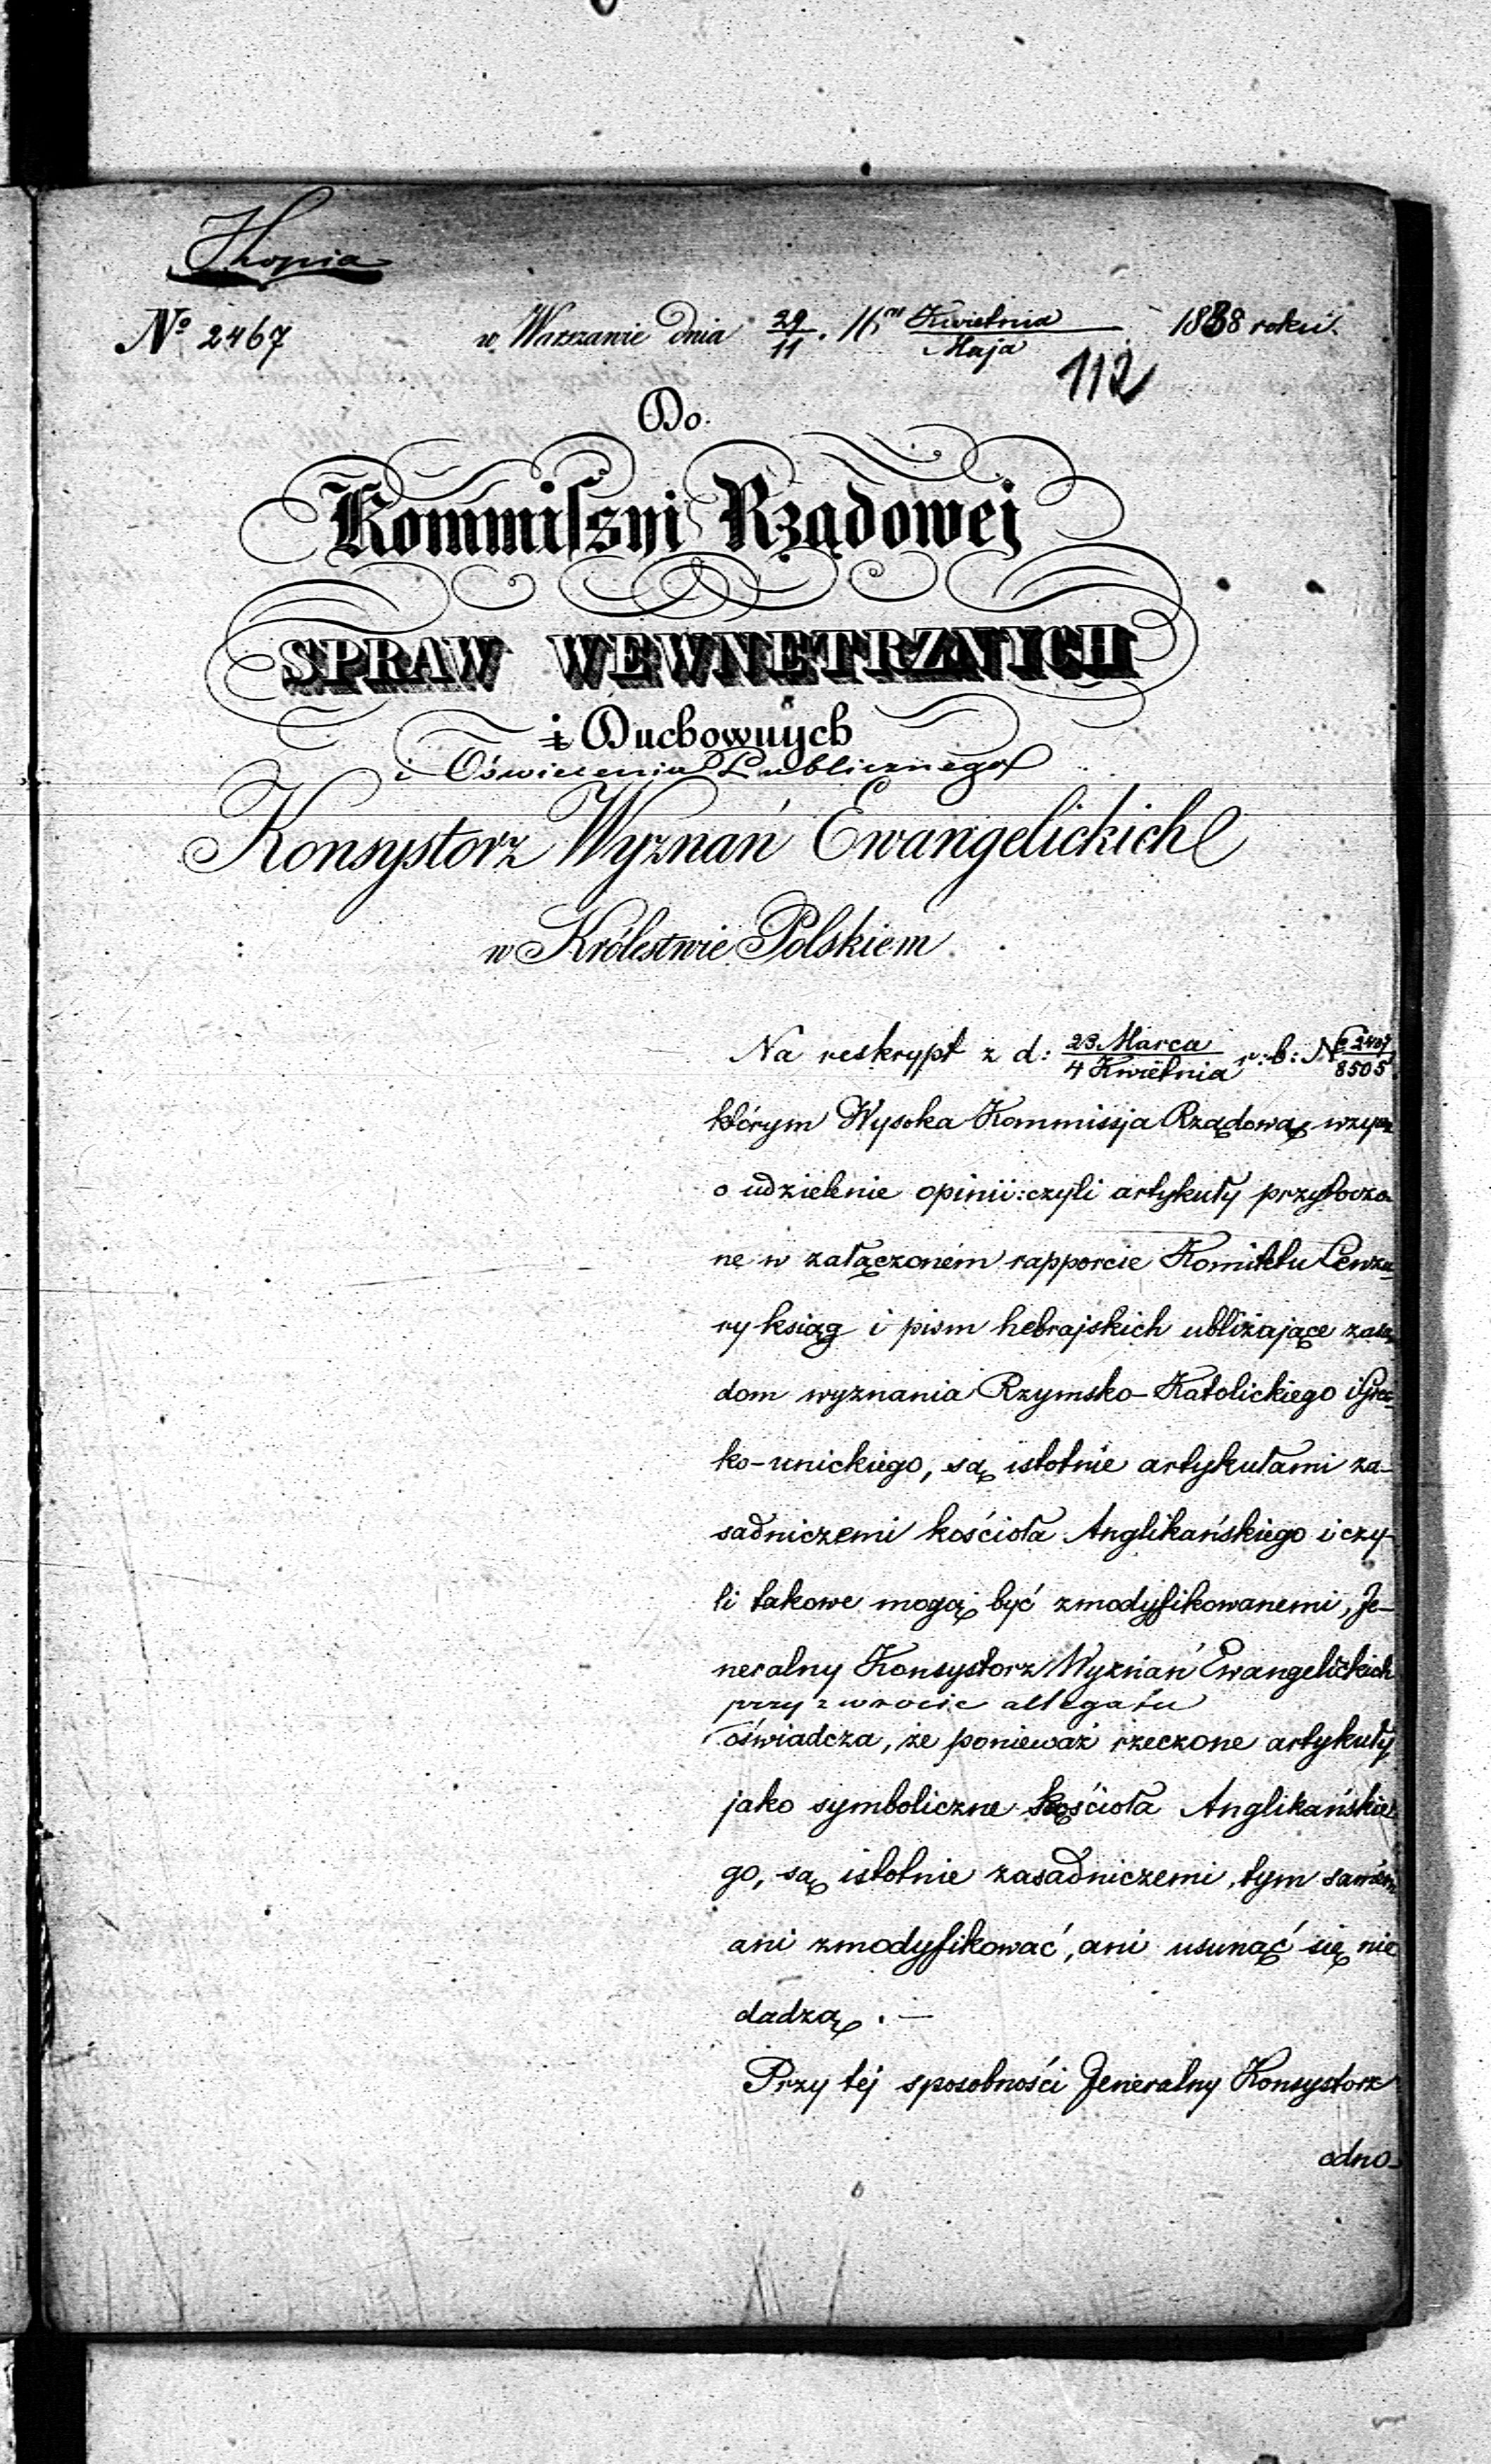 Kopia
№ 2467 w Warszawie dnia 29/11 Kwietnia/Maja 1838 roku.
112
Do
Kommiſzyi Rządowej
SPRAW WEWNĘTRZNYCH
i Duchownych
i Oświecenia Publicznego
Konsystorz Wyznań Ewangelickich
w Królestwie Polskiem
Na reskrypt z d: 23 Marca/4 Kwietnia r: b: № /8505
którym Wysoka Kommissja Rządowa
o udzielenie opinii: czyli artykuły przytoczo
ne w załączoném rapporcie Komitetu Cenzu
ry ksiąg i pism hebrajskich ubliżające zasa
dom wyznania Rzymsko-Katolickiego i Grec-
ko-unickiego, są istotnie artykułami za-
sadniczemi kościoła Anglikańskiego i czy-
li takowe mogą być zmodyfikowanemi, Je-
neralny Konsystorz Wyznań Ewangelickich
przy zwrocie allegatu
oświadcza, że ponieważ rzeczone artykuły
jako symboliczne kościoła Anglikańskie
go, są istotnie zasadniczemi, tym samém
ani zmodyfikować, ani usunąć się nie
dadzą. —
Przy téj sposobności Jeneralny Konsystorz
odno-